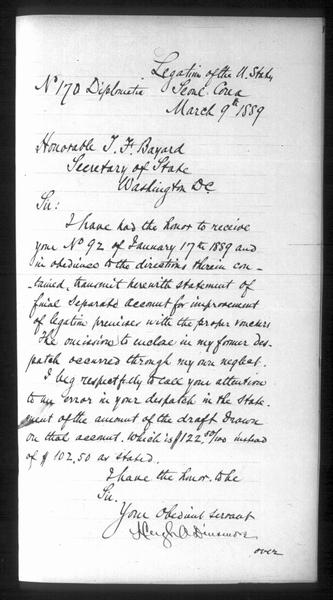 Legation of the U. States
No 170 Diplomatic Seoul Corea
March 9th 1889
Honorable T. F. Bayard
Secretary of State
Washington D.C.
Sir:
I have had the honor to receive
your No 92 of January 17th 1889 and
in obedience to the directions therein con-
tained, transmit herewith statement of
final separate account for improvement
of legation premises with the proper vouchers
The omission to enclose in my former des-
patch occurred through my own neglect.
I beg respectfully to call your attention
to an error in your despatch in the state-
ment of the amount of the draft drawn
on that account. Which is $122.50/100 instead
of $102.50 as stated.
I have the honor to be
Sir.
Your obedient servant
Hugh A Dinsmore
over